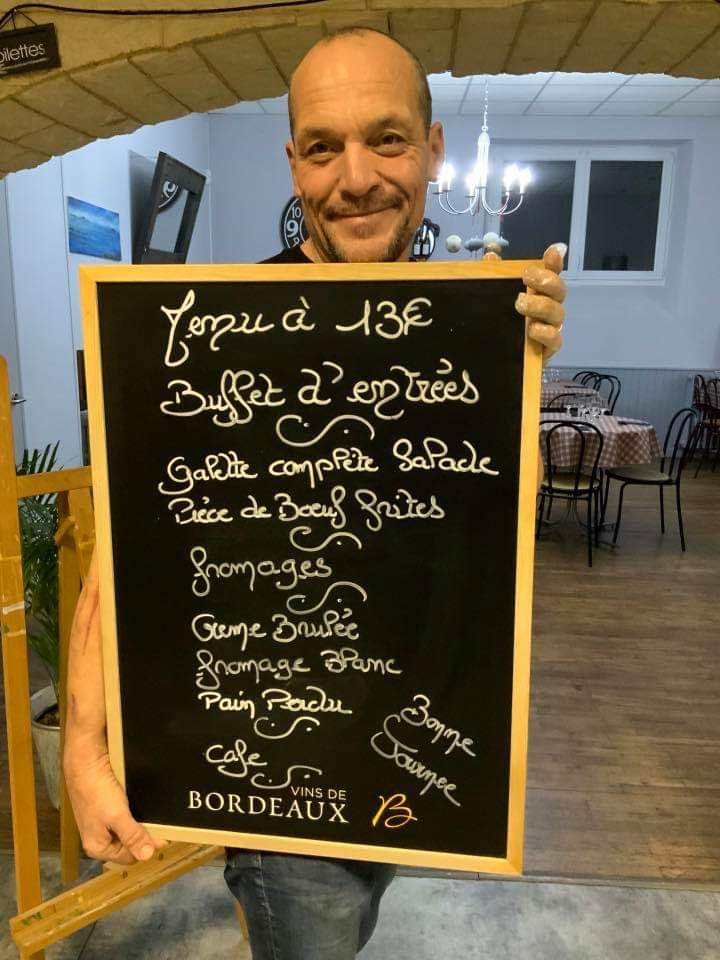 oilettes
10
Menu à 13€
Buffet d'entrées
Galette complète Salade
Pièce de Boeuf frites
fromages
Creme Brulée
fromage Blanc
Pain Perdu
Café
Bonne
Journee
VINS DE
BORDEAUX
B